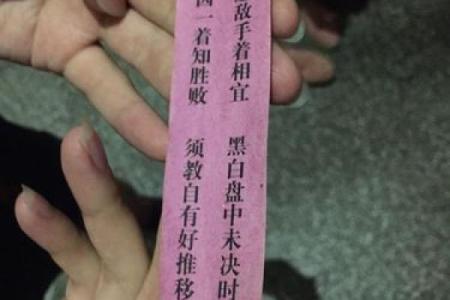 敌手着相宜 黑白盘中未决时
一着知胜败 须教自有好推移